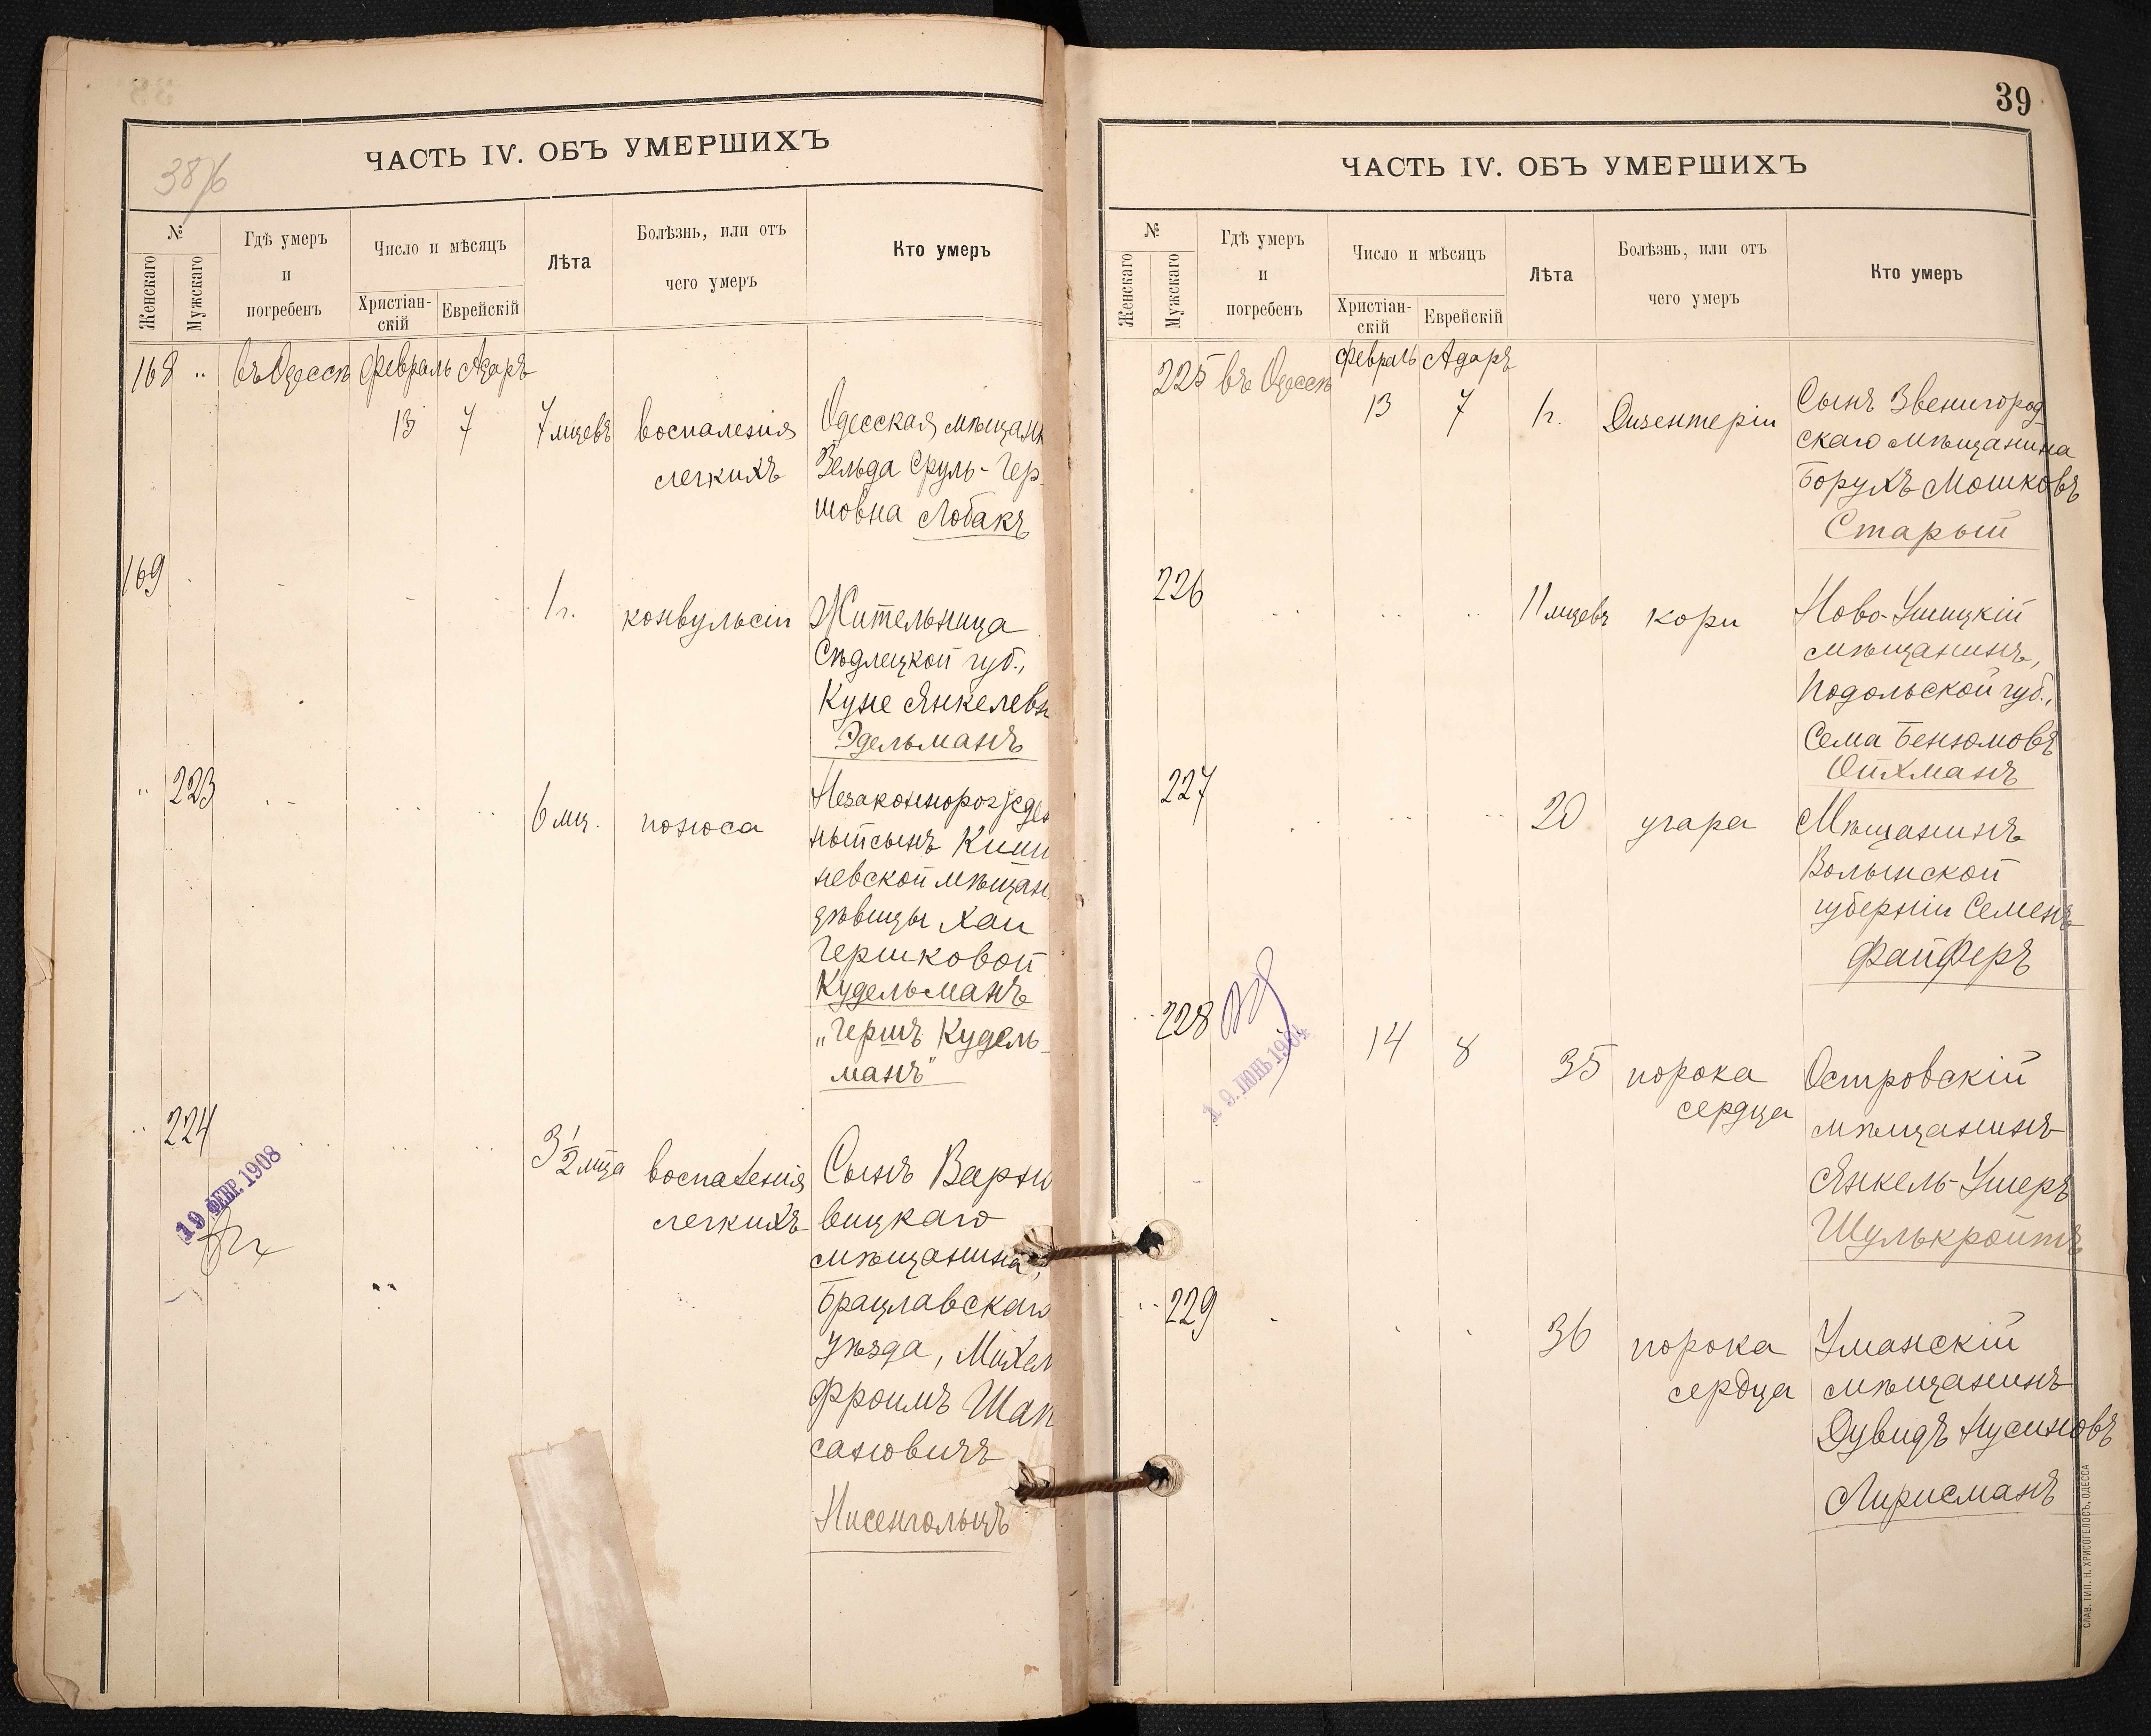 ЧАСТЬ IV. ОБЪ УМЕРШИХЪ
№
Женскаго
Мужскаго
Гдѣ умеръ
и
погребенъ
Число и мѣсяцъ
Христіан-
скій
Еврейскій
Лѣта
Болѣзнь, или отъ
чего умеръ
Кто умеръ
168 въ Одессѣ Февраль Адаръ
13 7 7 мцевъ воспаленія
легкихъ
Одесская мѣщан
Зельда Сруль-Гер
шовна Лобакъ
169
1 г. конвульсіи Жительница
Сѣдлецкой губ.,
Куне Янкелевн
Эдельманъ
223
6 мц. поноса Незаконнорожден
ный сынъ Киши
невской мѣщан.
дѣвицы Хаи
Гершковой
Кудельманъ
„Гершъ Кудель-
манъ"
224
3 1/2 мца воспаленія
легкихъ
Сынъ Варно
вицкаго
мѣщанина,
Брацлавскаго
уѣзда, Михел
Фроимъ Шап
сановичъ
Нисенгольцъ
19 ФЕВР. 1908
39
ЧАСТЬ IV. ОБЪ УМЕРШИХЪ
№
Женскаго
Мужскаго
Гдѣ умеръ
и
погребенъ
Число и мѣсяцъ
Христіан-
скій
Еврейскій
Лѣта
Болѣзнь, или отъ
чего умеръ
Кто умеръ
225 въ Одессѣ Февраль Адаръ
13 7 1 г. Дизентеріи
Сынъ Звенигород
скаго мѣщанина
Борухъ Мошковъ
Старый
226
11 мцевъ кори Ново-Ушицкій
мѣщанинъ,
Подольской губ.,
Сема Бенюмовъ
Ойхманъ
227
20 угара Мѣщанинъ
Волынской
губерніи Семенъ
Файферъ
228
19. ІЮНЬ 1904
14 8 35 порока
сердца
Островскій
мѣщанинъ
Янкель-Ушеръ
Шулькройтъ
229
36 порока
сердца
Уманскій
мѣщанинъ
Дувидъ Нусиновъ
Лирисманъ
СЛАВ. ТИП. Н. ХРИСОГЕЛОСЪ, ОДЕССА